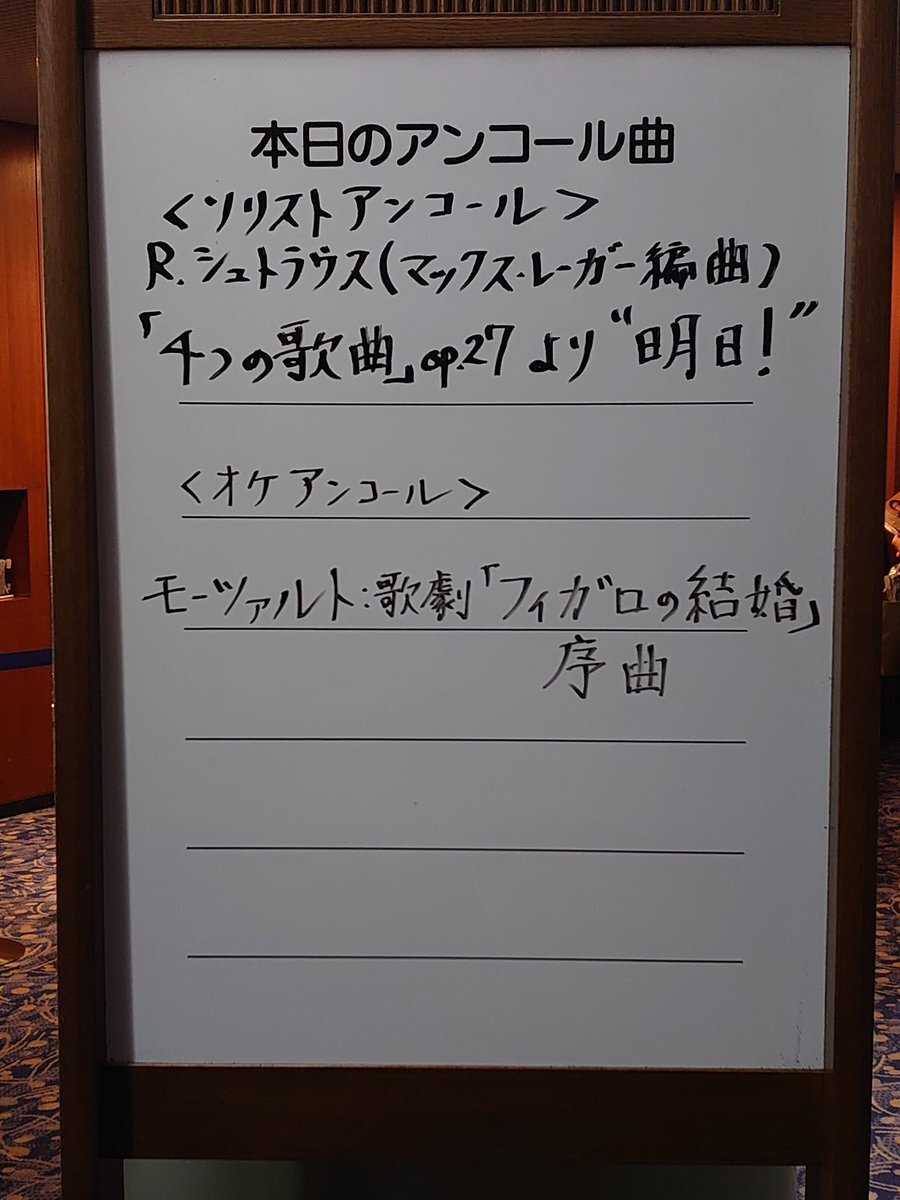 本日のアンコール曲
<ソリストアンコール>
R.シュトラウス(マックス・レーガー編曲)
「4つの歌曲」op.27より"明日!"
<オケアンコール>
モーツァルト:歌劇「フィガロの結婚」
序曲